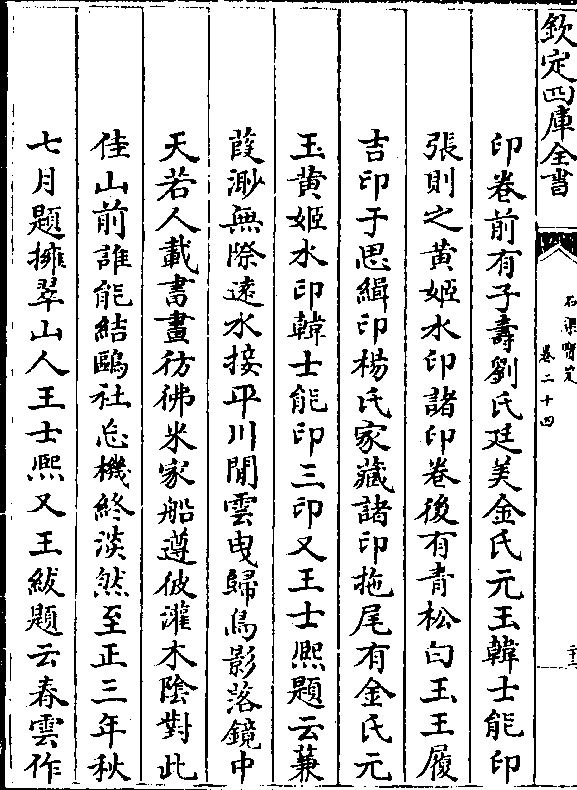 欽定四庫全書
石渠寶笈
卷二十四
印卷前有子壽劉氏廷美金氏元玉韓士能印
張則之黄姬水印諸印卷後有青松白玉王履
吉印于思緝印楊氏家藏諸印拖尾有金氏元
玉黄姬水印韓士能印三印又王士熙題云蒹
葭渺無際逺水接平川閒雲曳歸鳥影落鏡中
天若人載書畫彷彿米家船遵彼灌木陰對此
佳山前誰能結鷗社忘機終淡然至正三年秋
七月題擁翠山人王士熙又王紱題云春雲作